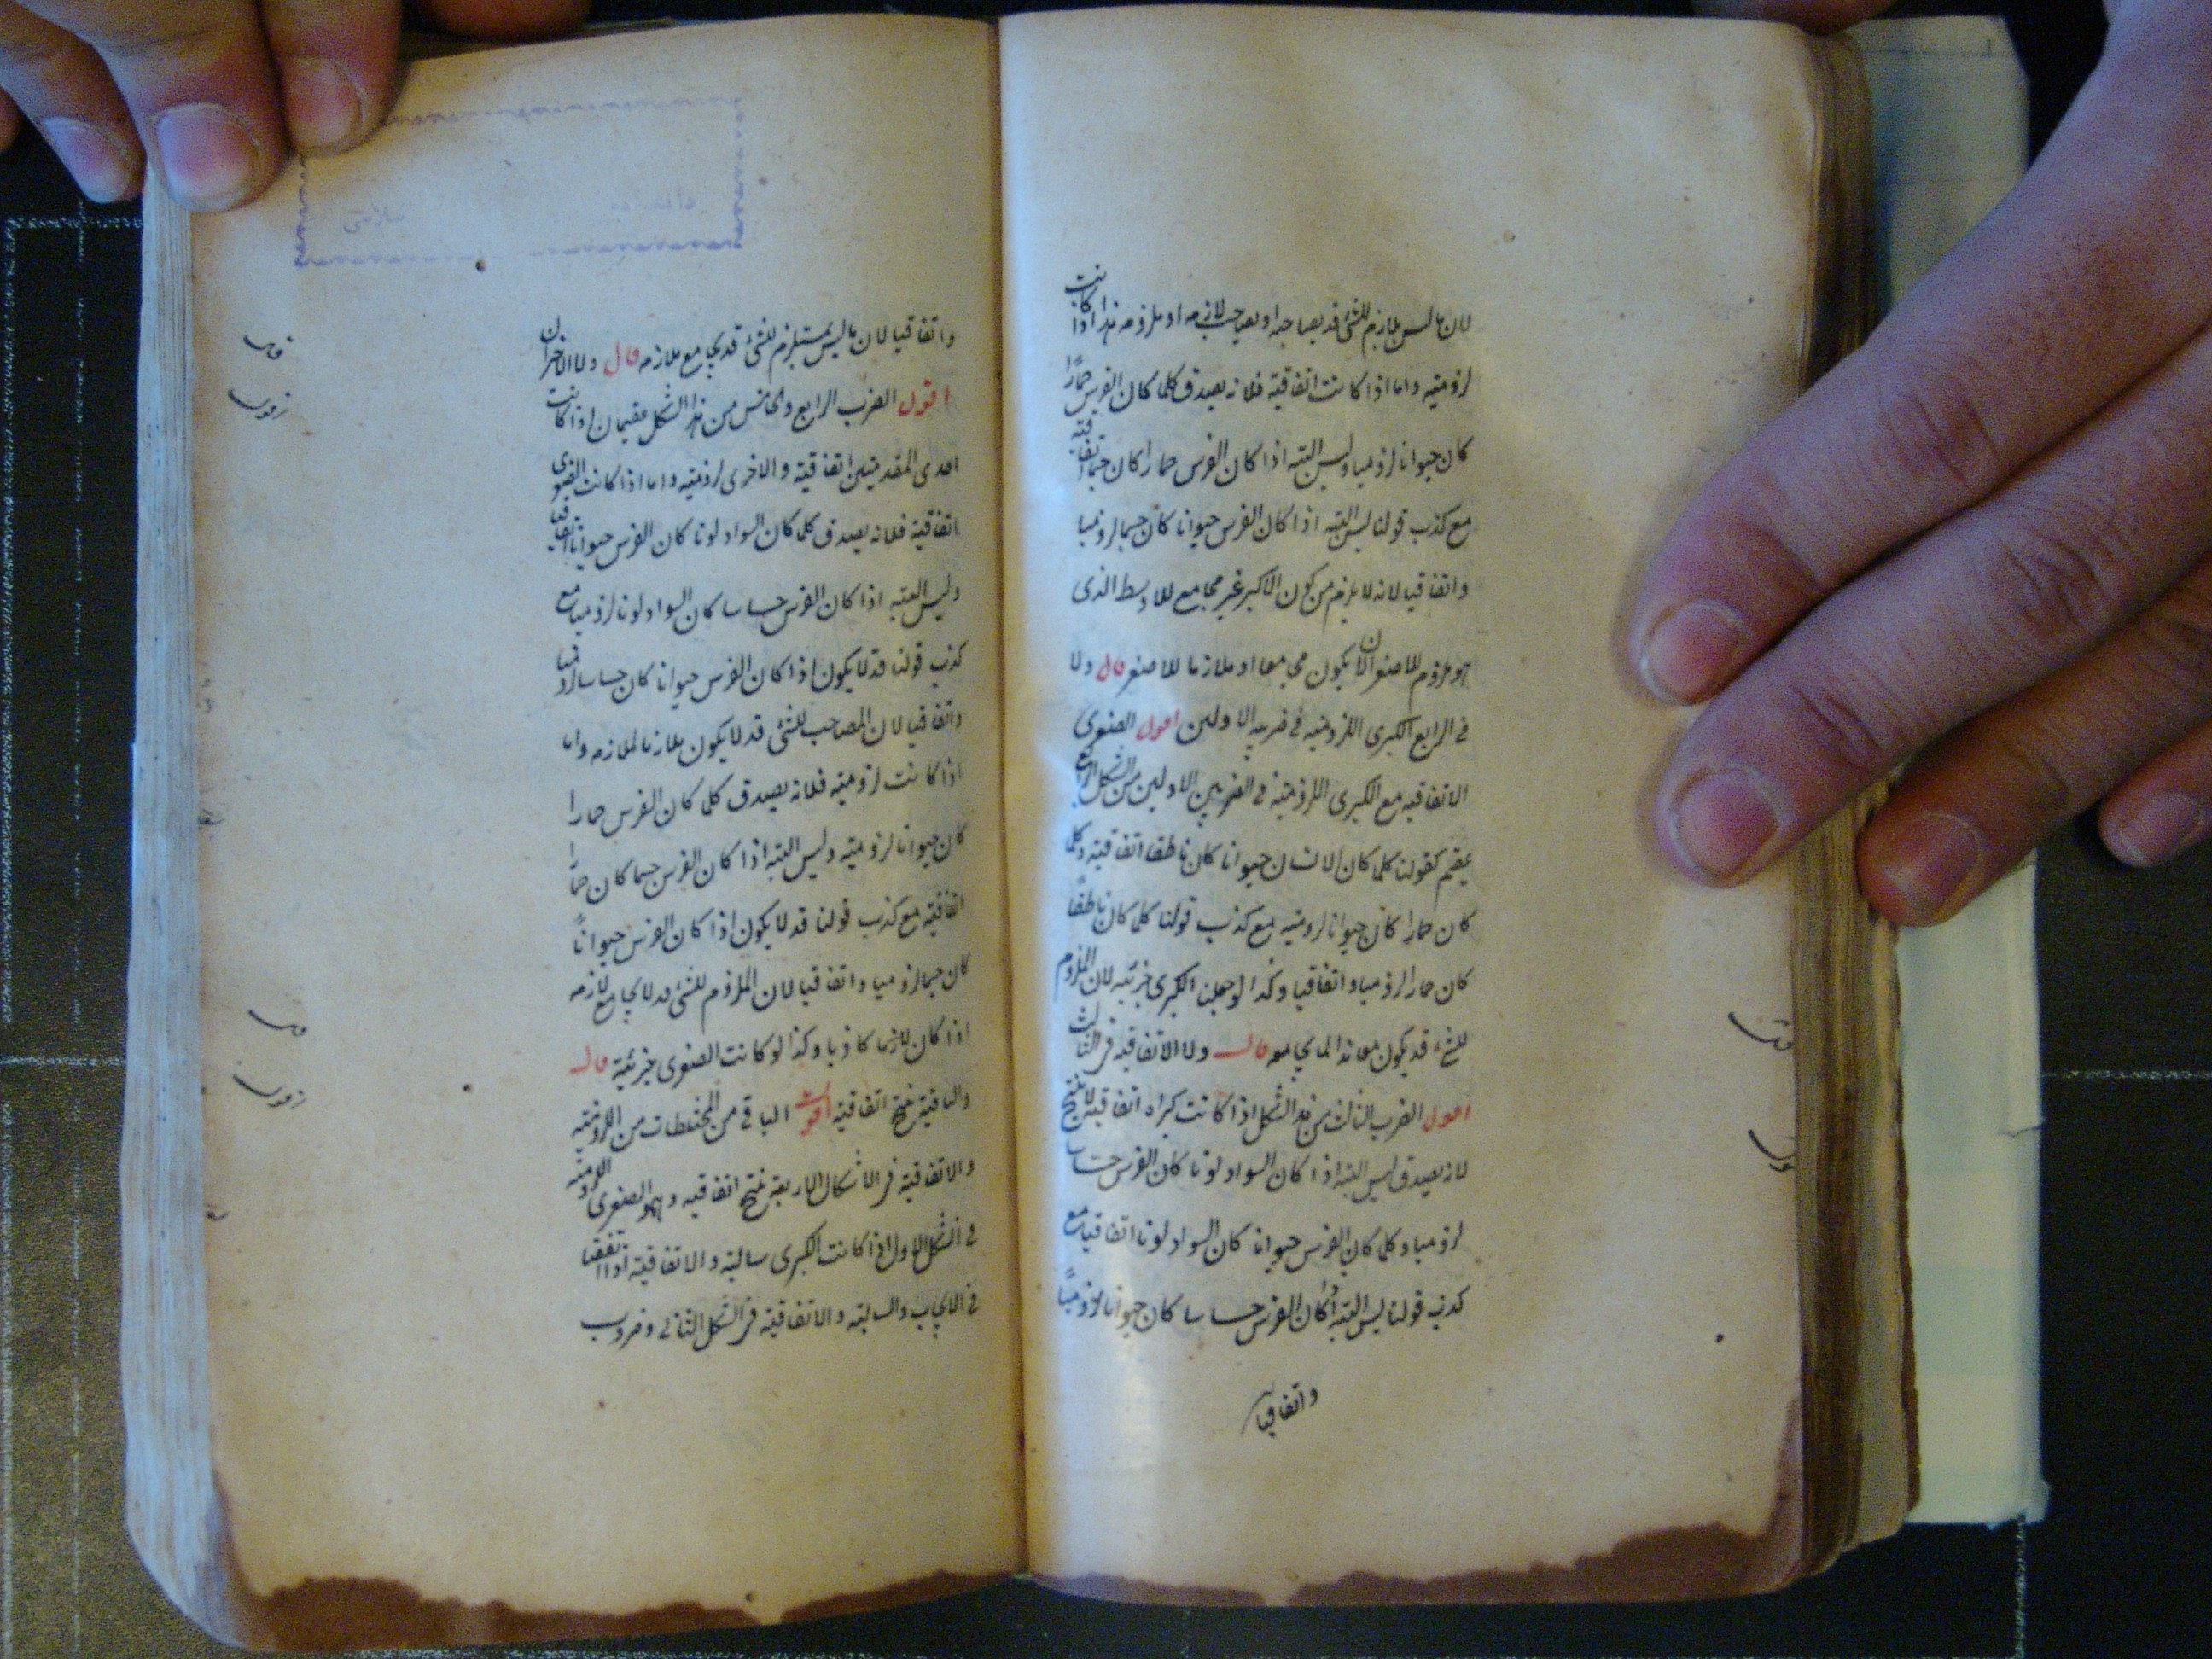 لان ما ليس بلازم للشئ قد يصاحبه او يصاحب لازمه او ملزومه هذا اذا كانت
لزومية واما اذا كانت اتفاقية فلانه يصدق كلما كان الفرس حمارًا
كان حيوانا لزوميا وليس البتة اذا كان الفرس حمارا كان جسما اتفاقية
مع كذب قولنا ليس البتة اذا كان الفرس حيوانا كان جسما لزوميا
واتفاقيا لانه لا يلزم من كون الاكبر غير مجامع للاوسط الذى
هو ملزوم للاصغر ان لا يكون مجامعا او ملازما للاصغر قال ولا
فى الرابع الكبرى اللزومية فى ضربيه الاولين اقول الصغرى
الاتفاقيه مع الكبرى اللزومية فى الضربين الاولين من الشكل الرابع
عقيم كقولنا كلما كان الانسان حيوانا كان ناطقا اتفاقية وكلما
كان حمارا كان حيوانا لزومية مع كذب قولنا كلما كان ناطقًا
كان حمارا لزوميا واتفاقيا وكذا لو جعلنا الكبرى جزئيه لان الملزوم
للشئ قد يكون معاندا لما يجامعه قال ولا الاتفاقيه فى الثالث
اقول الضرب الثالث من هذا الشكل اذا كانت كبراه اتفاقية لا ينتج
لانه يصدق ليس البتة اذا كان السواد لونا كان الفرس حساسا
لزوميا وكلما كان الفرس حيوانا كان السواد لونا اتفاقيا مع
كذب قولنا ليس البتة اذا كان الفرس حساسا كان حيوانا لزوميًا
واتفاقيا
واتفاقيا لان ما ليس بمستلزم للشئ قد يجامع ملازمه قال ولا الاخيران
اقول الضرب الرابع والخامس من هذا الشكل عقيمان اذا كانت
احدى المقدمتين اتفاقية والاخرى لزومية واما اذا كانت الصغرى
اتفاقية فلانه يصدق كلما كان السواد لونا كان الفرس حيوانا اتفاقيا
وليس البتة اذا كان الفرس حساسا كان السواد لونا لزوميا مع
كذب قولنا قد لا يكون اذا كان الفرس حيوانا كان حساسا لزوميا
واتفاقيا لان المصاحب للشئ قد لا يكون ملازما لملازمه واما
اذا كانت لزومية فلانه يصدق كلما كان الفرس حمارا
كان حيوانا لزومية وليس البتة اذا كان الفرس جسما كان حمارا
اتفاقية مع كذب قولنا قد لا يكون اذا كان الفرس حيوانًا
كان جسما لزوميا واتفاقيا لان الملزوم للشئ قد لا يجامع لازمه
اذا كان لازما كاذبا وكذا لو كانت الصغرى جزئية قال
والباقية ينتج اتفاقية اقول الباقى من المختلطات من اللزومية
والاتفاقية فى الاشكال الاربعة ينتج اتفاقيه وهو الصغرى اللزومية
فى الشكل الاول اذا كانت الكبرى سالبة والاتفاقية اذا اتفقتا
فى الايجاب والسالبة والاتفاقية فى الشكل الثانى وضروب